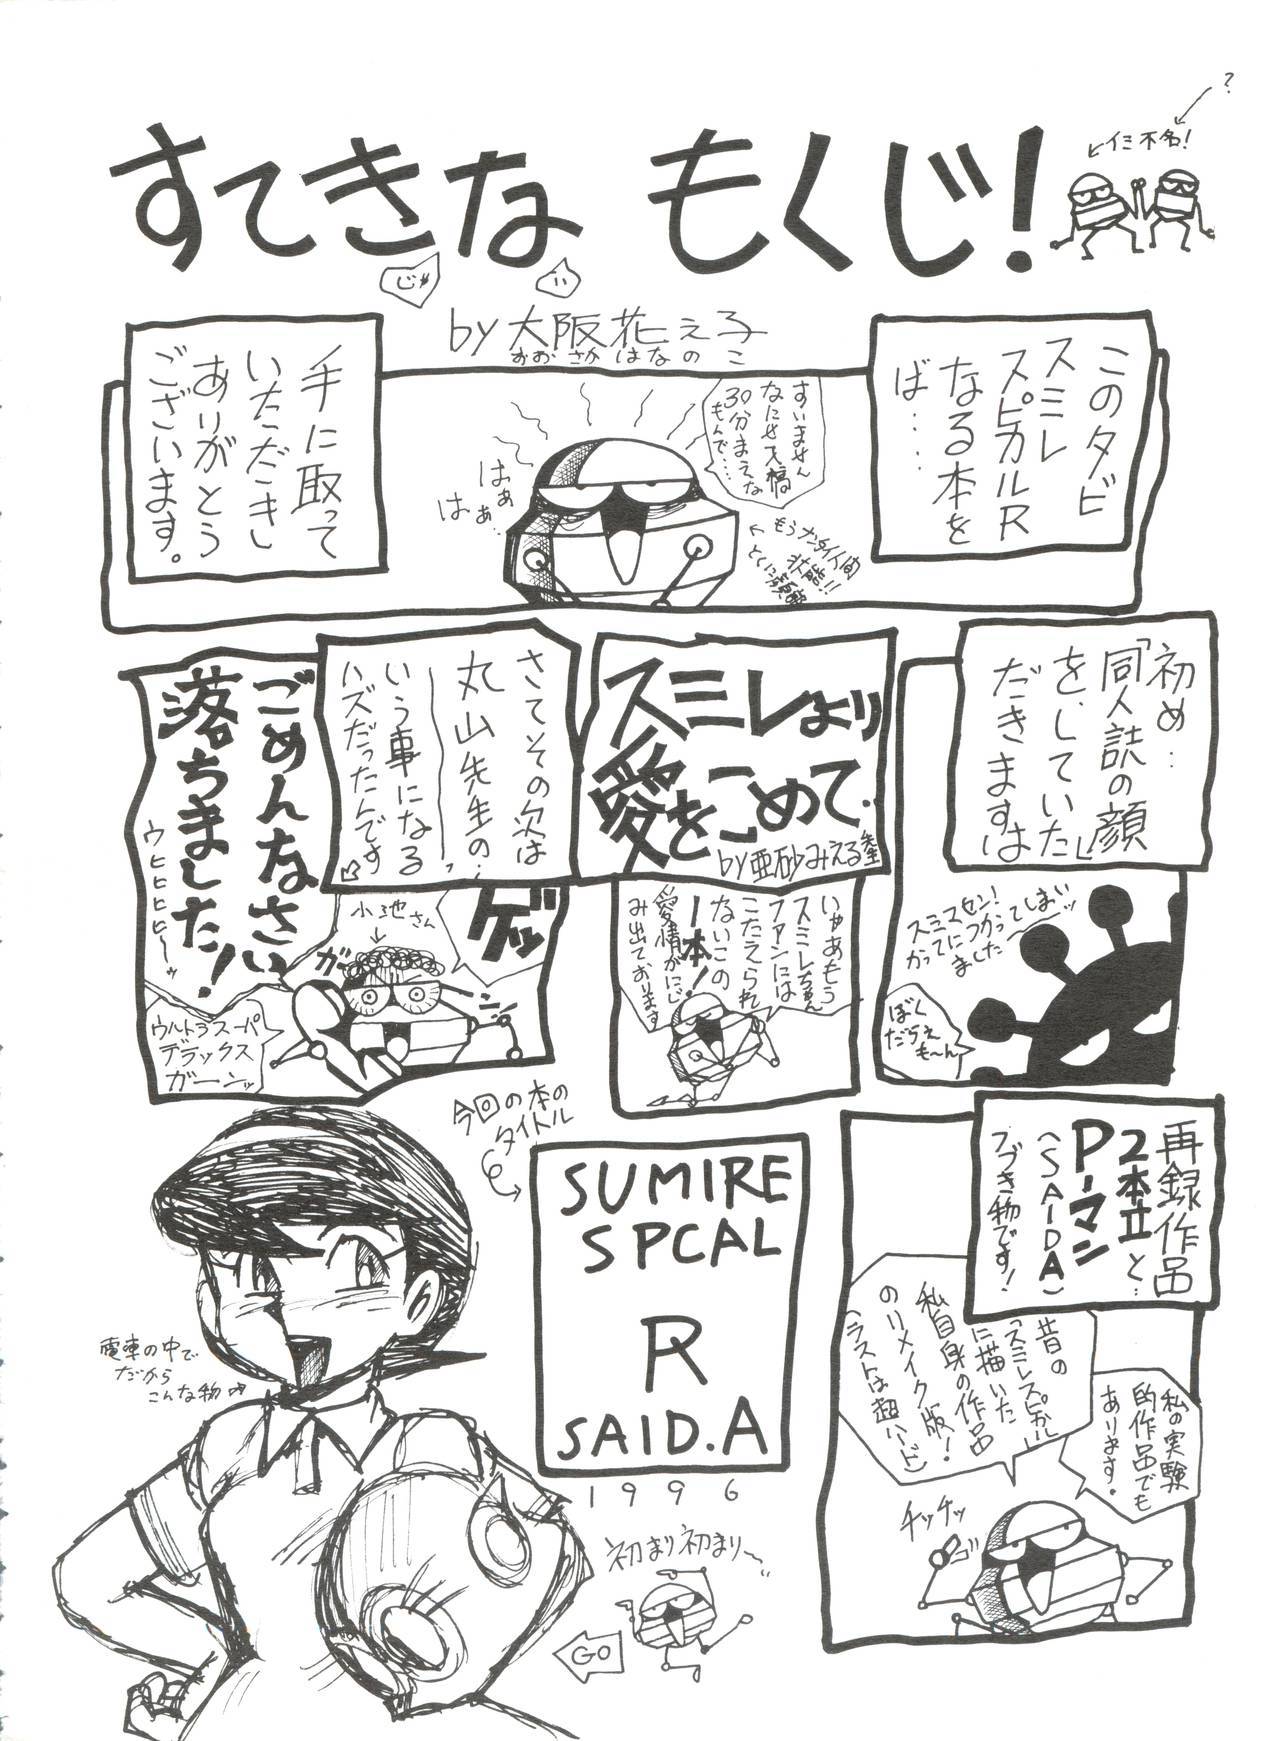 すてきな もくじ!
じゃ
?
イミ不名!
by 大阪花え子
おおさかはなのこ
このタビ
スミレ
スピカルR
なる本を
ば……
手に取って
いただきし
ありがとう
ございます。
すいません
なにせ天稿
30分まえな
もんで…
はぁ
はぁ…
もうナイ人間
状態!!
とくに顔
初め…
「同人誌の顔」
をしていた
だきますは
スミスセン!
かってにつかってしまいッ
ました〜
ぼく
だらえ
も〜ん
スミレより
愛をこめて.
by亜砂みえる先生
いやあもう
スミレちゃん
ファンには
こたえられ
ないこの
一本!
愛情がにじ
み出ております
さてその次は
丸山先生の…
いう事になる
ハズだったんです
ゲッ
小池さん
ガーン
ごめんなさい
落ちました!
ウヒヒヒヒ〜ッ
ウルトラスーパ
デラックス
ガーンッ
再録作品
2本立と…
P-マン
(SAIDA)
つづき物です!
私の実験
的作品でも
あります。
昔の
「スミレスピカル」
に描いた
私自身の作品
のリメイク版!
(ラストは超ハード)
チッチッ
今回の本の
タイトル
SUMIRE
SPCAL
R
SAID.A
1996
電車の中で
だから
こんな物
初まり初まり〜
GO